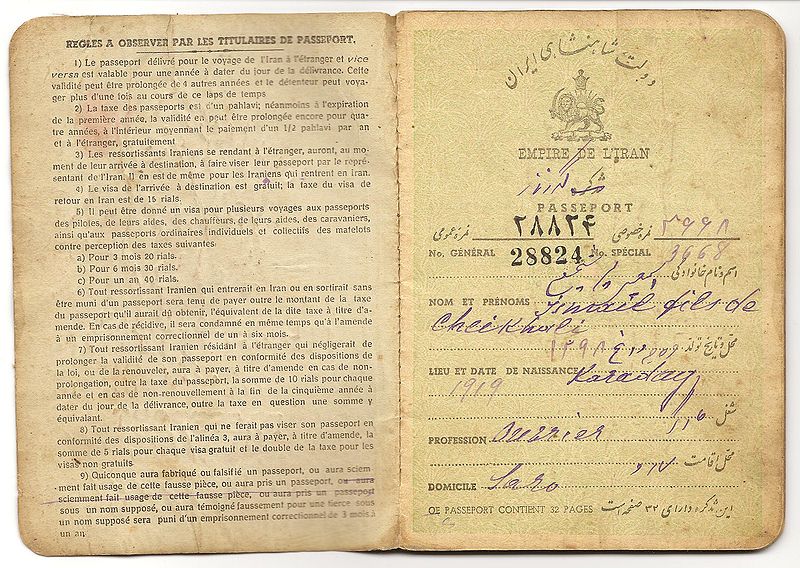 REGLES A OBSERVER PAR LES TITULAIRES DE PASSEPORT.
1) Le passeport délivré pour le voyage de l'Iran à l'étranger et vice
versa est valable pour une année à dater du jour de la délivrance. Cette
validité peut être prolongée de 4 autres années et le détenteur peut voya-
ger plus d'une fois au cours de ce laps de temps
2) La taxe des passeports est d'un pahlavi; néanmoins à l'expiration
de la première année, la validité en peut être prolongée encore pour qua-
tre années, à l'intérieur moyennant le paiement d'un 1/2 pahlavi par an
et à l'étranger, gratuitement
3) Les ressortissants Iraniens se rendant à l'étranger, auront, au mo-
ment de leur arrivée à destination, à faire viser leur passeport par le repré-
sentant de l'Iran. Il en est de même pour les Iraniens qui rentrent en Iran.
4) Le visa de l'arrivée à destination est gratuit; la taxe du visa de
retour en Iran est de 15 rials.
5) Il peut être donné un visa pour plusieurs voyages aux passeports
des pilotes, de leurs aides, des chauffeurs, de leurs aides, des caravaniers,
ainsi qu'aux passeports ordinaires individuels et collectifs des matelots
contre perception des taxes suivantes
a) Pour 3 mois 20 rials.
b) Pour 6 mois 30 rials.
c) Pour un an 40 rials.
6) Tout ressortissant Iranien qui entrerait en Iran ou en sortirait sans
être muni d'un passeport sera tenu de payer outre le montant de la taxe
du passeport qu'il aurait dû obtenir, l'équivalent de la dite taxe à titre d'a-
mende. En cas de récidive, il sera condamné en même temps qu'à l'amende
à un emprisonnement correctionnel de un à six mois.
7) Tout ressortissant Iranien résidant à l'étranger qui négligerait de
prolonger la validité de son passeport en conformité des dispositions de
la loi, ou de la renouveler, aura à payer, à titre d'amende en cas de non-
prolongation, outre la taxe du passeport, la somme de 10 rials pour chaque
année et en cas de non-renouvellement à la fin de la cinquième année à
dater du jour de la délivrance, outre la taxe en question une somme y
équivalant.
8) Tout ressortissant Iranien qui ne ferait pas viser son passeport en
conformité des dispositions de l'alinéa 3, aura à payer, à titre d'amende, la
somme de 5 rials pour chaque visa gratuit et le double de la taxe pour les
visas non gratuits
9) Quiconque aura fabriqué ou falsifié un passeport, ou aura sciem
ment fait usage de cette fausse pièce, ou aura pris un passeport, ou aura
sciemment fait usage de cette fausse pièce, ou aura pris un passeport
sous un nom supposé, ou aura témoigné faussement pour une tierce sous
un nom supposé sera puni d'un emprisonnement correctionnel de 3 mois à
un an
دولت شاهنشاهی ایران
EMPIRE DE L'IRAN
PASSEPORT
نمره عمومی ۲۸۸۲۴ نمره خصوصی ۳۶۶۸
No. GÉNÉRAL 28824 No. SPÉCIAL 3668
اسم و نام خانوادگی
NOM ET PRÉNOMS Ismail fils de
Cheikhali
محل و تاریخ تولد ۱۲۹۸
LIEU ET DATE DE NAISSANCE Karadag
1919
شغل
PROFESSION Ouvrier
محل اقامت
DOMICILE
CE PASSEPORT CONTIENT 32 PAGES این تذکره دارای ۳۲ صفحه است